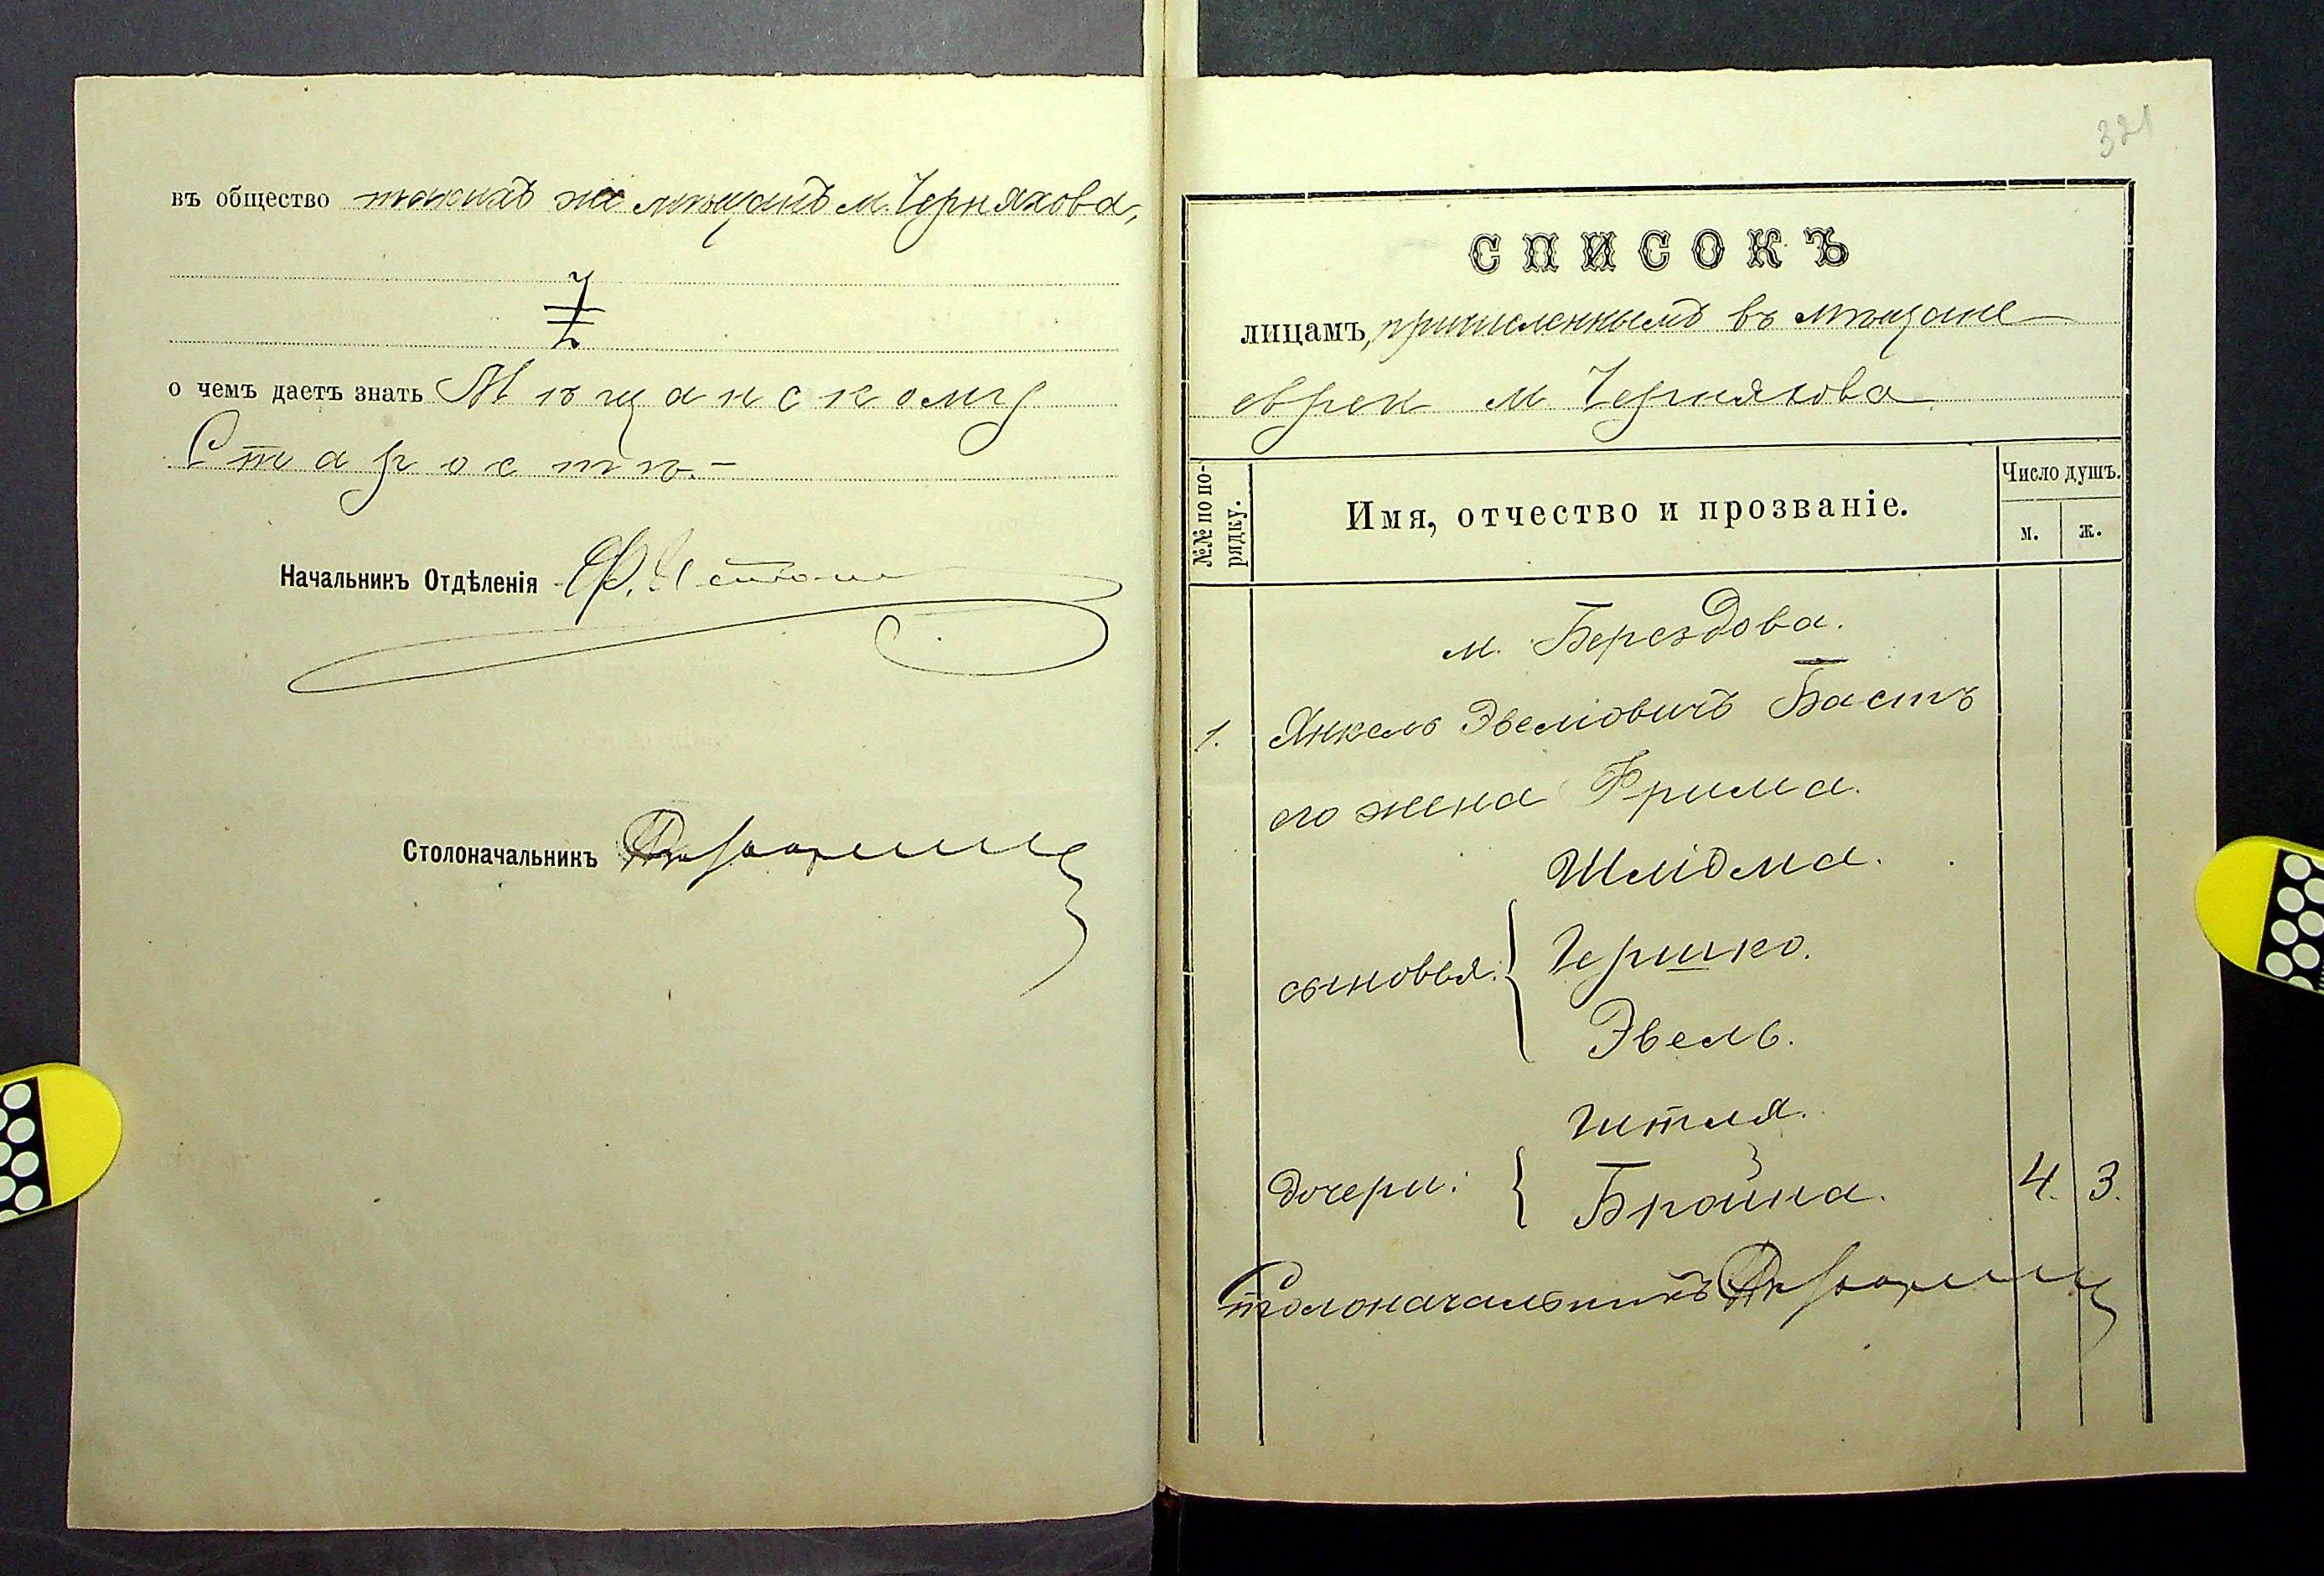 въ общество такихъ же мѣщанъ м. Черняхова,
о чемъ даетъ знать Мѣщанскому
Старостѣ.-
Начальникъ Отдѣленія
Столоначальникъ
321
СПИСОКЪ
лицамъ, причисленнымъ въ мѣщане
евреи м. Черняхова
№№ по порядку.
Имя, отчество и прозваніе.
Число душъ.
м. ж.
м. Берездова.
1. Янкель Эвелiовичъ Бастъ
его жена Фрима.
Шліома.
сыновья: Гершко.
Эвель.
Гитля.
дочери: Брайна. 4. 3.
Столоначальникъ